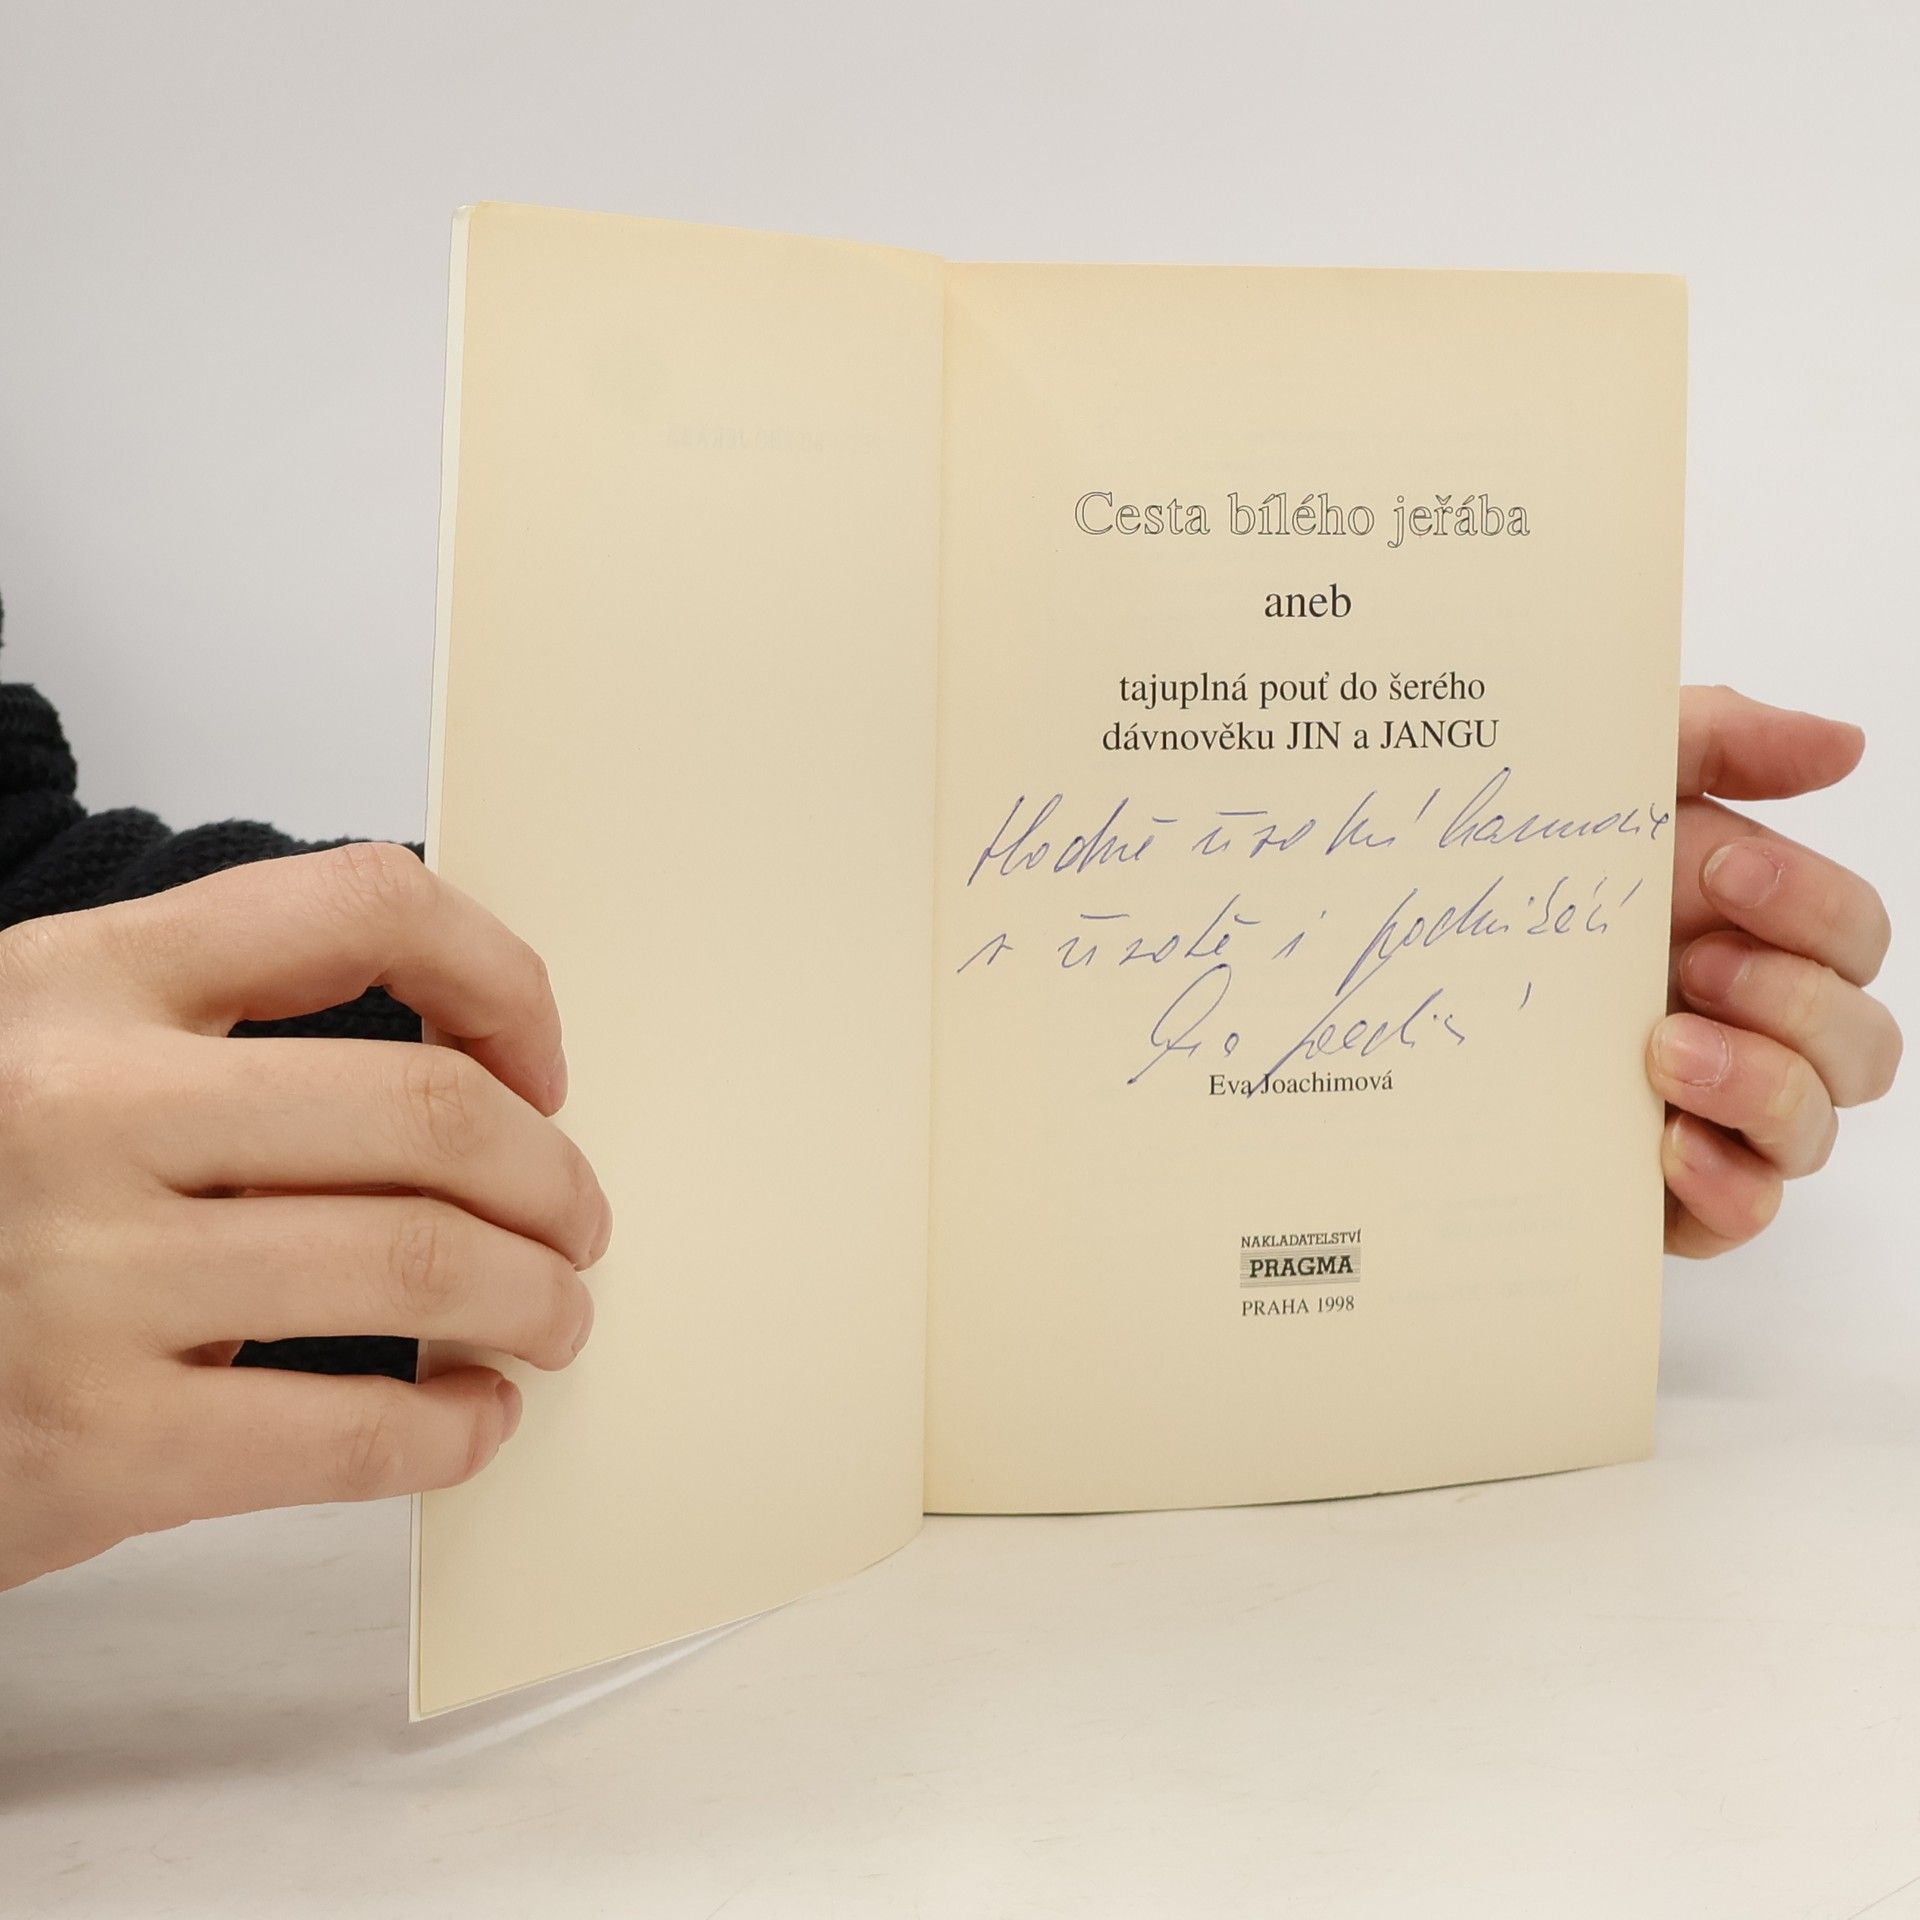 Cesta bílého jeřába
aneb
tajuplná pouť do šerého
dávnověku JIN a JANGU
Hodně životní harmonie
v životě i podnikání
Eva
Eva Joachimová
NAKLADATELSTVÍ
PRAGMA
PRAHA 1998